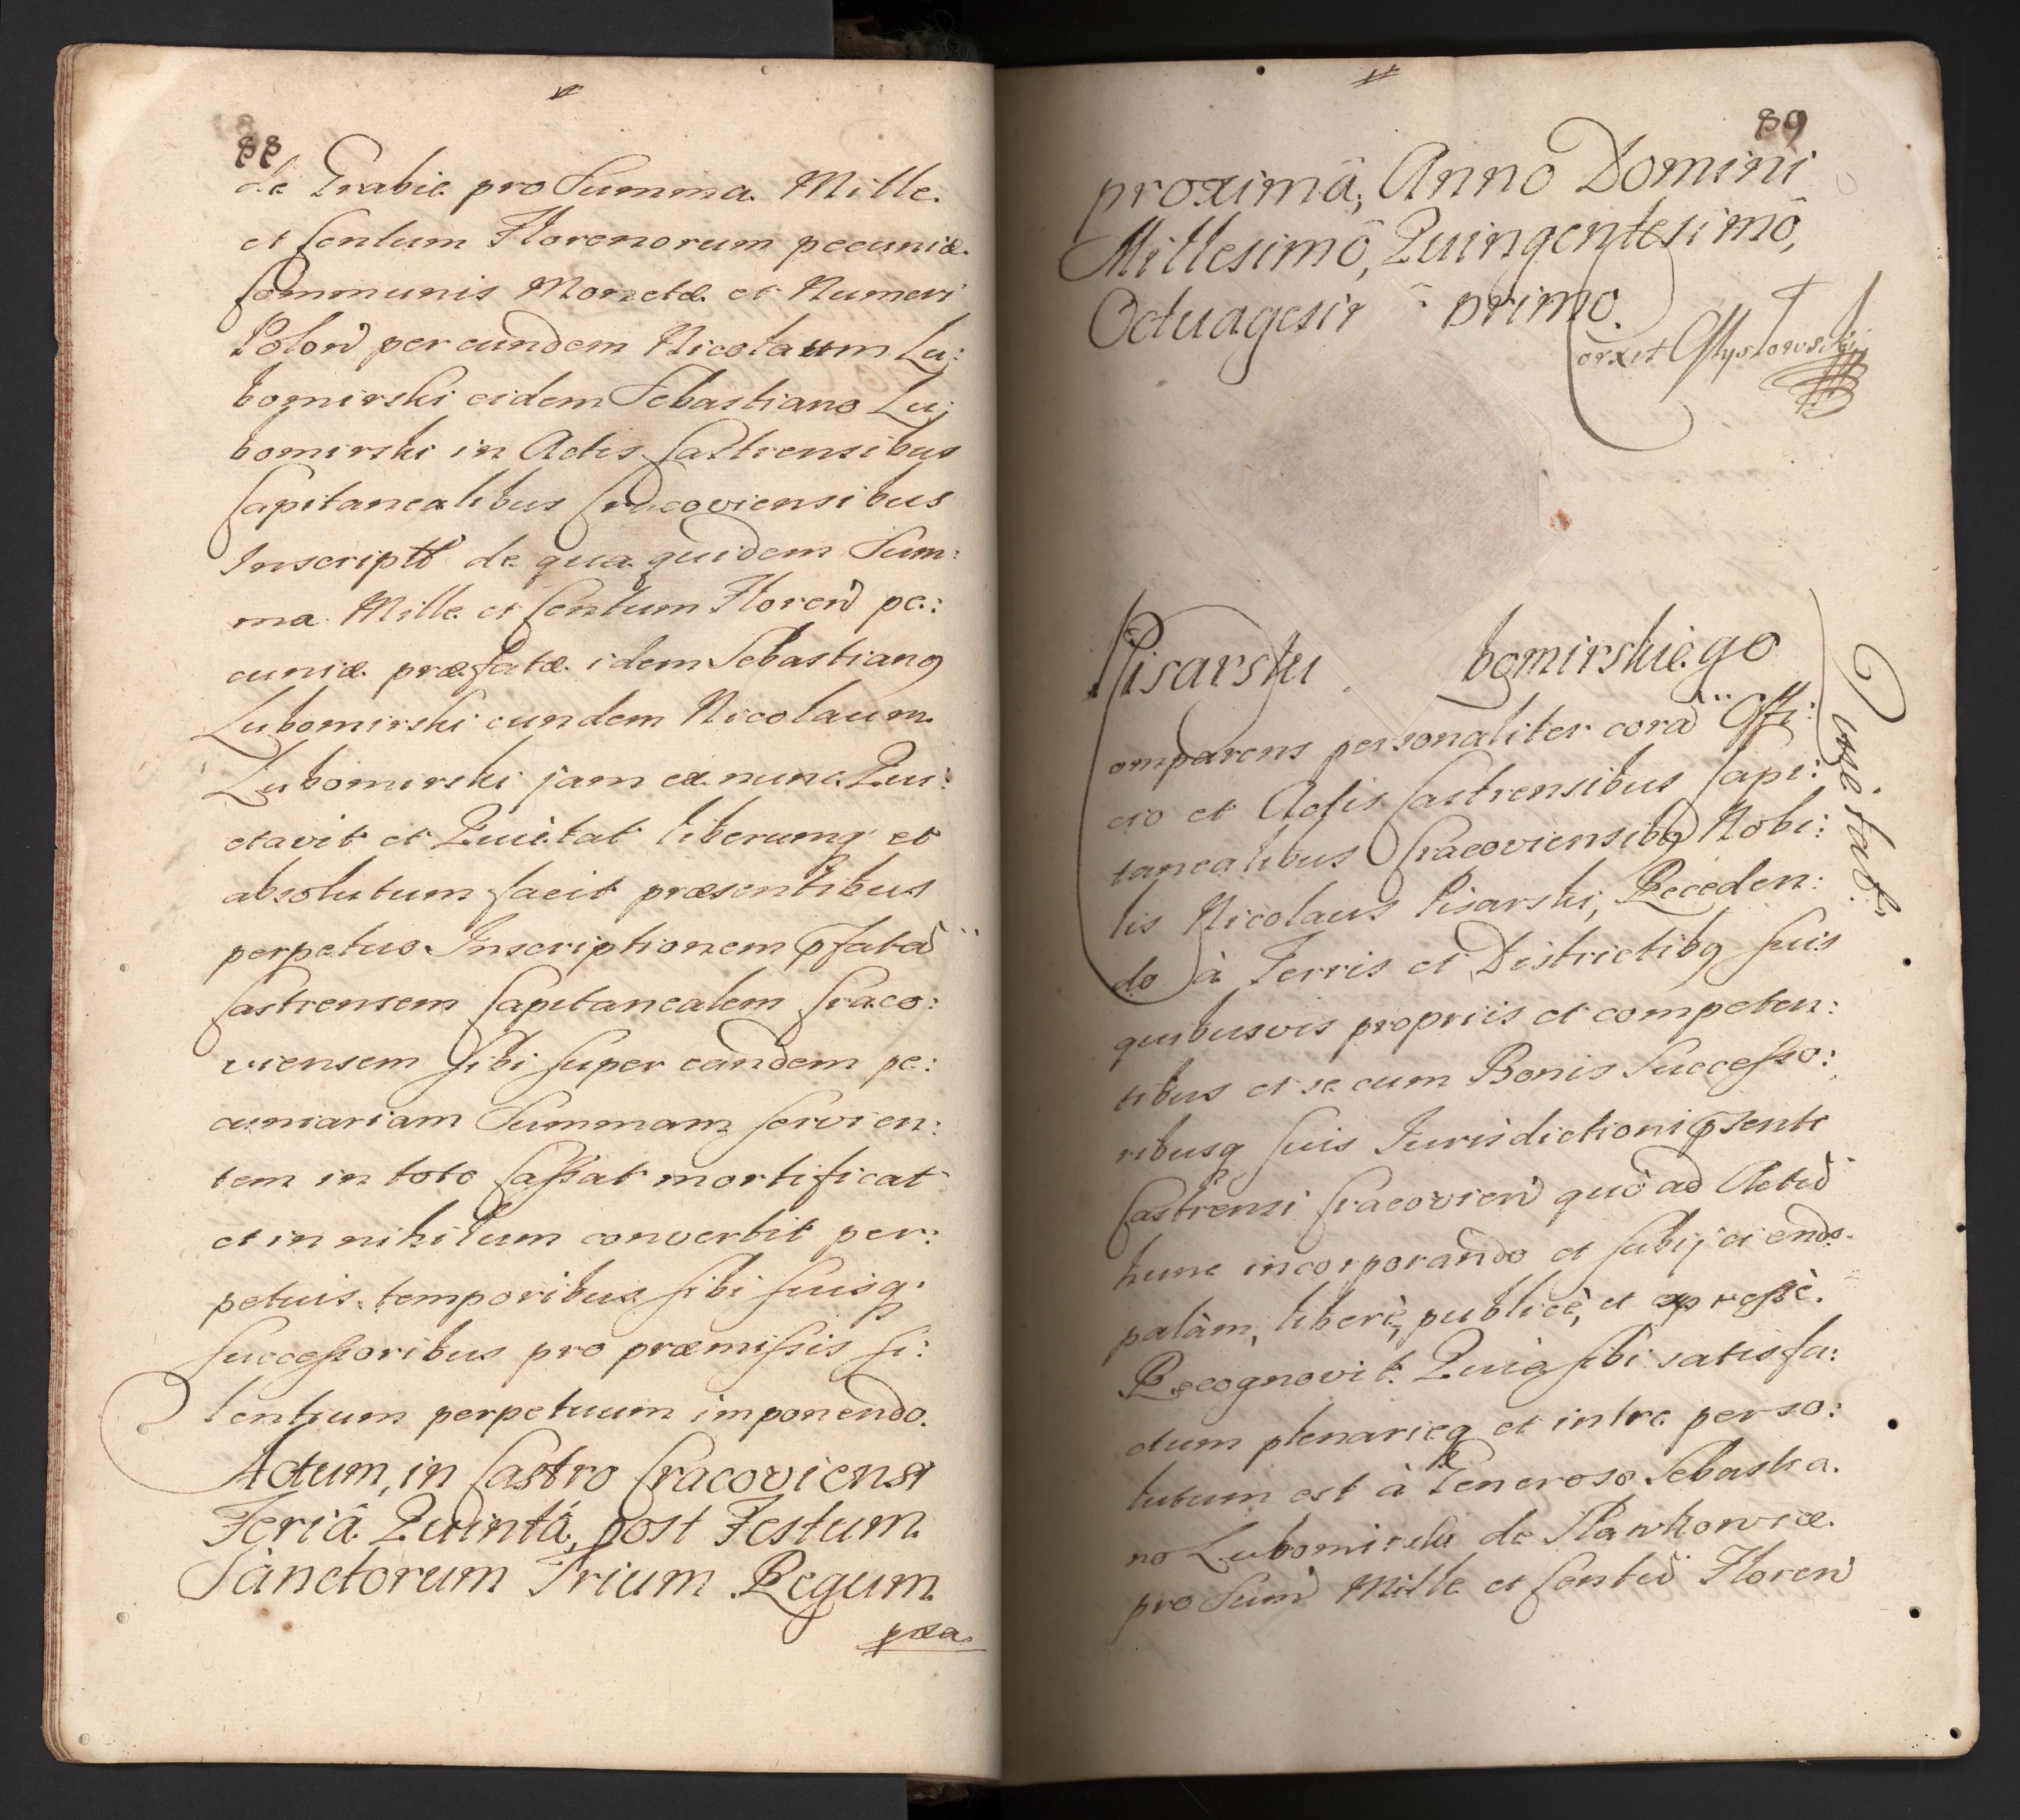 88
de Grabie pro Summa Mille
et Centum Florenorum pecuniæ
Communis Monetæ et Numeri
Polon̄ per eundem Nicolaum Lu:
bomirski eidem Sebastiano Lu:
bomirski in Actis Castrensibus
Capitanealibus Cracoviensibus
Inscript̃ de qua quidem Sum:
ma Mille et Centum Floren̄ pe:
cuniæ præfatæ idem Sebastianꝯ
Lubomirski eundem Nicolaum
Lubomirski jam ex nunc Qui:
etavit et Quietat liberumq́ et
absolutum facit præsentibus
perpetuo Inscriptionem p̄fatā
Castrensem Capitanealem Craco:
viensem sibi super eandem pe:
cuniariam Summam servien:
tem in toto Cassat mortificat
et in nihilum convertit per:
petuis temporibus sibi suisq́
successoribus pro præmissis si:
lentium perpetuum imponendo.
Actum, in Castro Cracoviensi
Feriâ Quintâ, post Festum
Sanctorum Trium Regum
89
proximâ, Anno Domini
Millesimô, Quingentesimô,
Octuagesi primo.
Pisarski bomirskiego
omparens personaliter corā Offi:
cio et Actis Castrensibus Capi:
tanealibus Cracoviensibꝯ Nobi:
lis Nicolaus Pisarski, Receden:
do à Terris et Districtibꝯ suis
quibusvis propriis et competen:
tibus et se cum Bonis Successo:
ribusq́ suis Jurisdictioni p̄senti
Castrensi Cracovien̄ quò ad Actū
hunc incorporando et subijciendo
palàm, liberè, publicè, et expressè.
Recognovit. Quia sibi satisfa:
ctum plenarieq́ et intre perso:
lutum est à Generoso Sebastia:
no Lubomirski de Slawkowice
pro Sum̄ Mille et Centū Floren̄